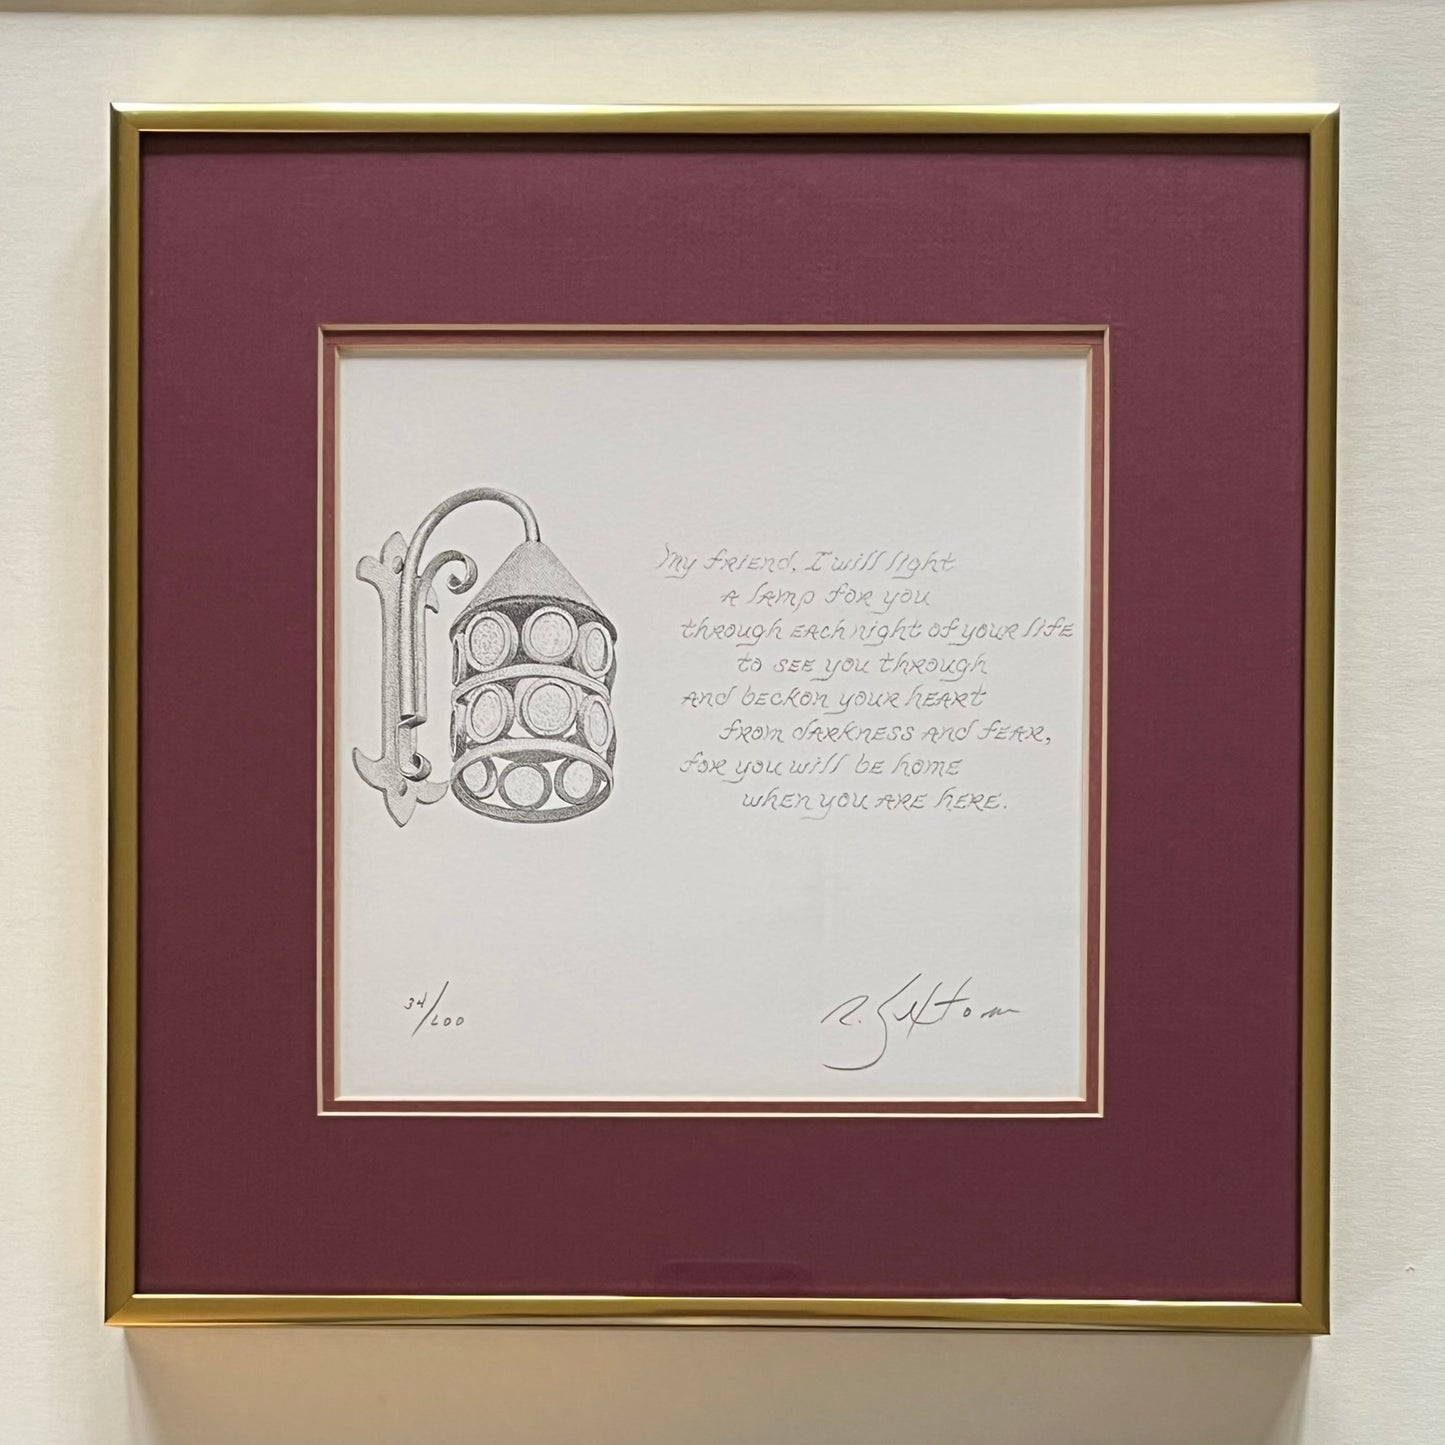 My friend, I will light
a lamp for you
through each night of your life
to see you through
and beckon your heart
from darkness and fear,
for you will be home
when you are here.
34/200
R. Sexton